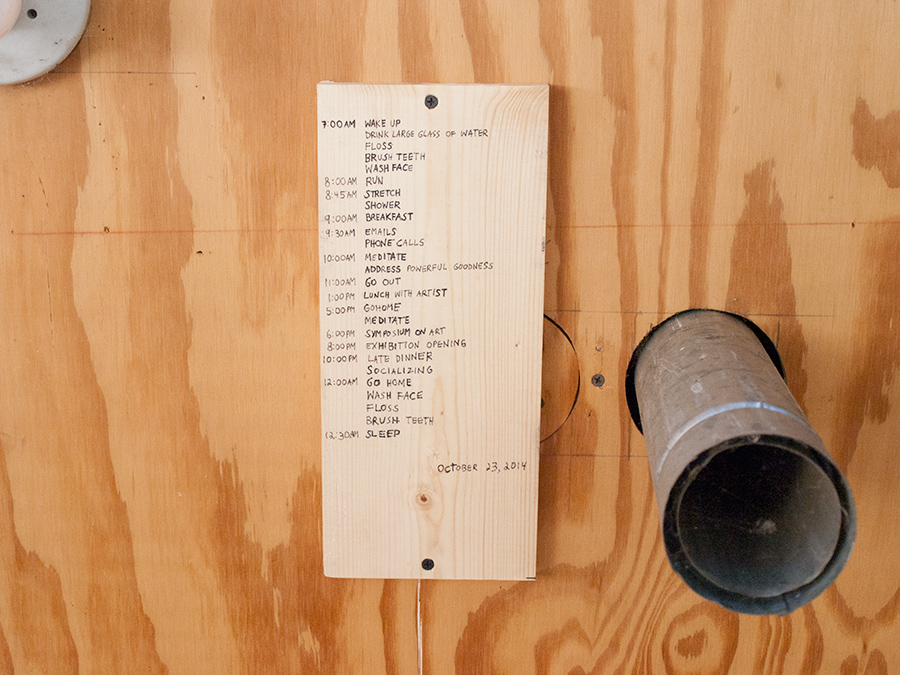 7:00AM WAKE UP
DRINK LARGE GLASS OF WATER
FLOSS
BRUSH TEETH
WASH FACE
8:00AM RUN
8:45AM STRETCH
SHOWER
9:00AM BREAKFAST
9:30AM EMAILS
PHONE CALLS
10:00AM MEDITATE
ADDRESS POWERFUL GOODNESS
11:00AM GO OUT
1:00PM LUNCH WITH ARTIST
5:00PM GO HOME
MEDITATE
6:00PM SYMPOSIUM ON ART
8:00PM EXHIBITION OPENING
10:00PM LATE DINNER
SOCIALIZING
12:00AM GO HOME
WASH FACE
FLOSS
BRUSH TEETH
12:30AM SLEEP
OCTOBER 23, 2014